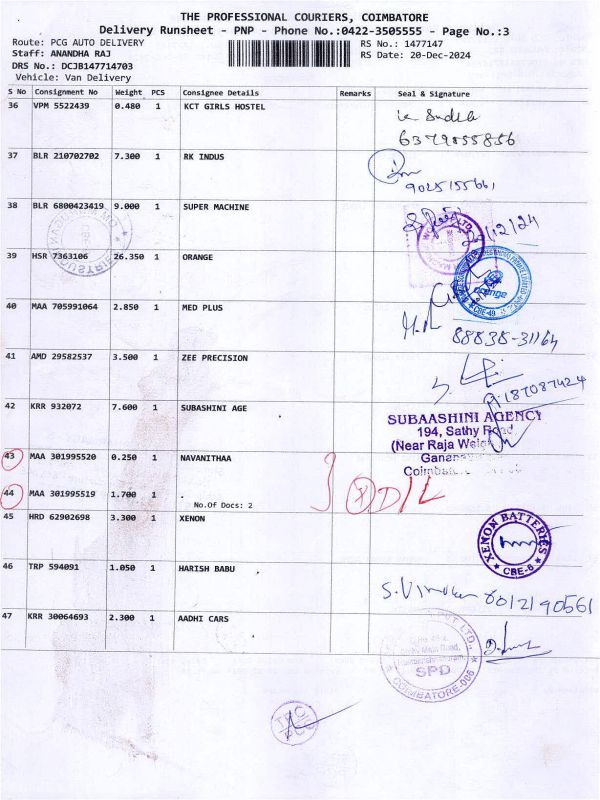 THE PROFESSIONAL COURIERS, COIMBATORE
Delivery Runsheet - PNP - Phone No.:0422-3505555 - Page No.:3
Route: PCG AUTO DELIVERY
RS No.: 1477147
Staff: ANANDHA RAJ
RS Date: 20-Dec-2024
DRS No.: DCJB147714703
Vehicle: Van Delivery
S No Consignment No Weight PCS Consignee Details Remarks Seal & Signature
36 VPM 5522439 0.480 1 KCT GIRLS HOSTEL
6379055856
37 BLR 210702702 7.300 1 RK INDUS
9025155661
38 BLR 6800423419 9.000 1 SUPER MACHINE
39 HSR 7363106 26.350 1 ORANGE
orange
CBE-49
40 MAA 705991064 2.850 1 MED PLUS
88838-31164
41 AMD 29582537 3.500 1 ZEE PRECISION
42 KRR 932072 7.600 1 SUBASHINI AGE
SUBAASHINI AGENCY
194, Sathy Road
(Near Raja
43 MAA 301995520 0.250 1 NAVANITHAA
44 MAA 301995519 1.700 1
No.Of Docs: 2
D/L
45 HRD 62902698 3.300 1 XENON
XENON BATTERIES
CBE-6
46 TRP 594091 1.050 1 HARISH BABU
47 KRR 30064693 2.300 1 AADHI CARS
SPD
COIMBATORE-006